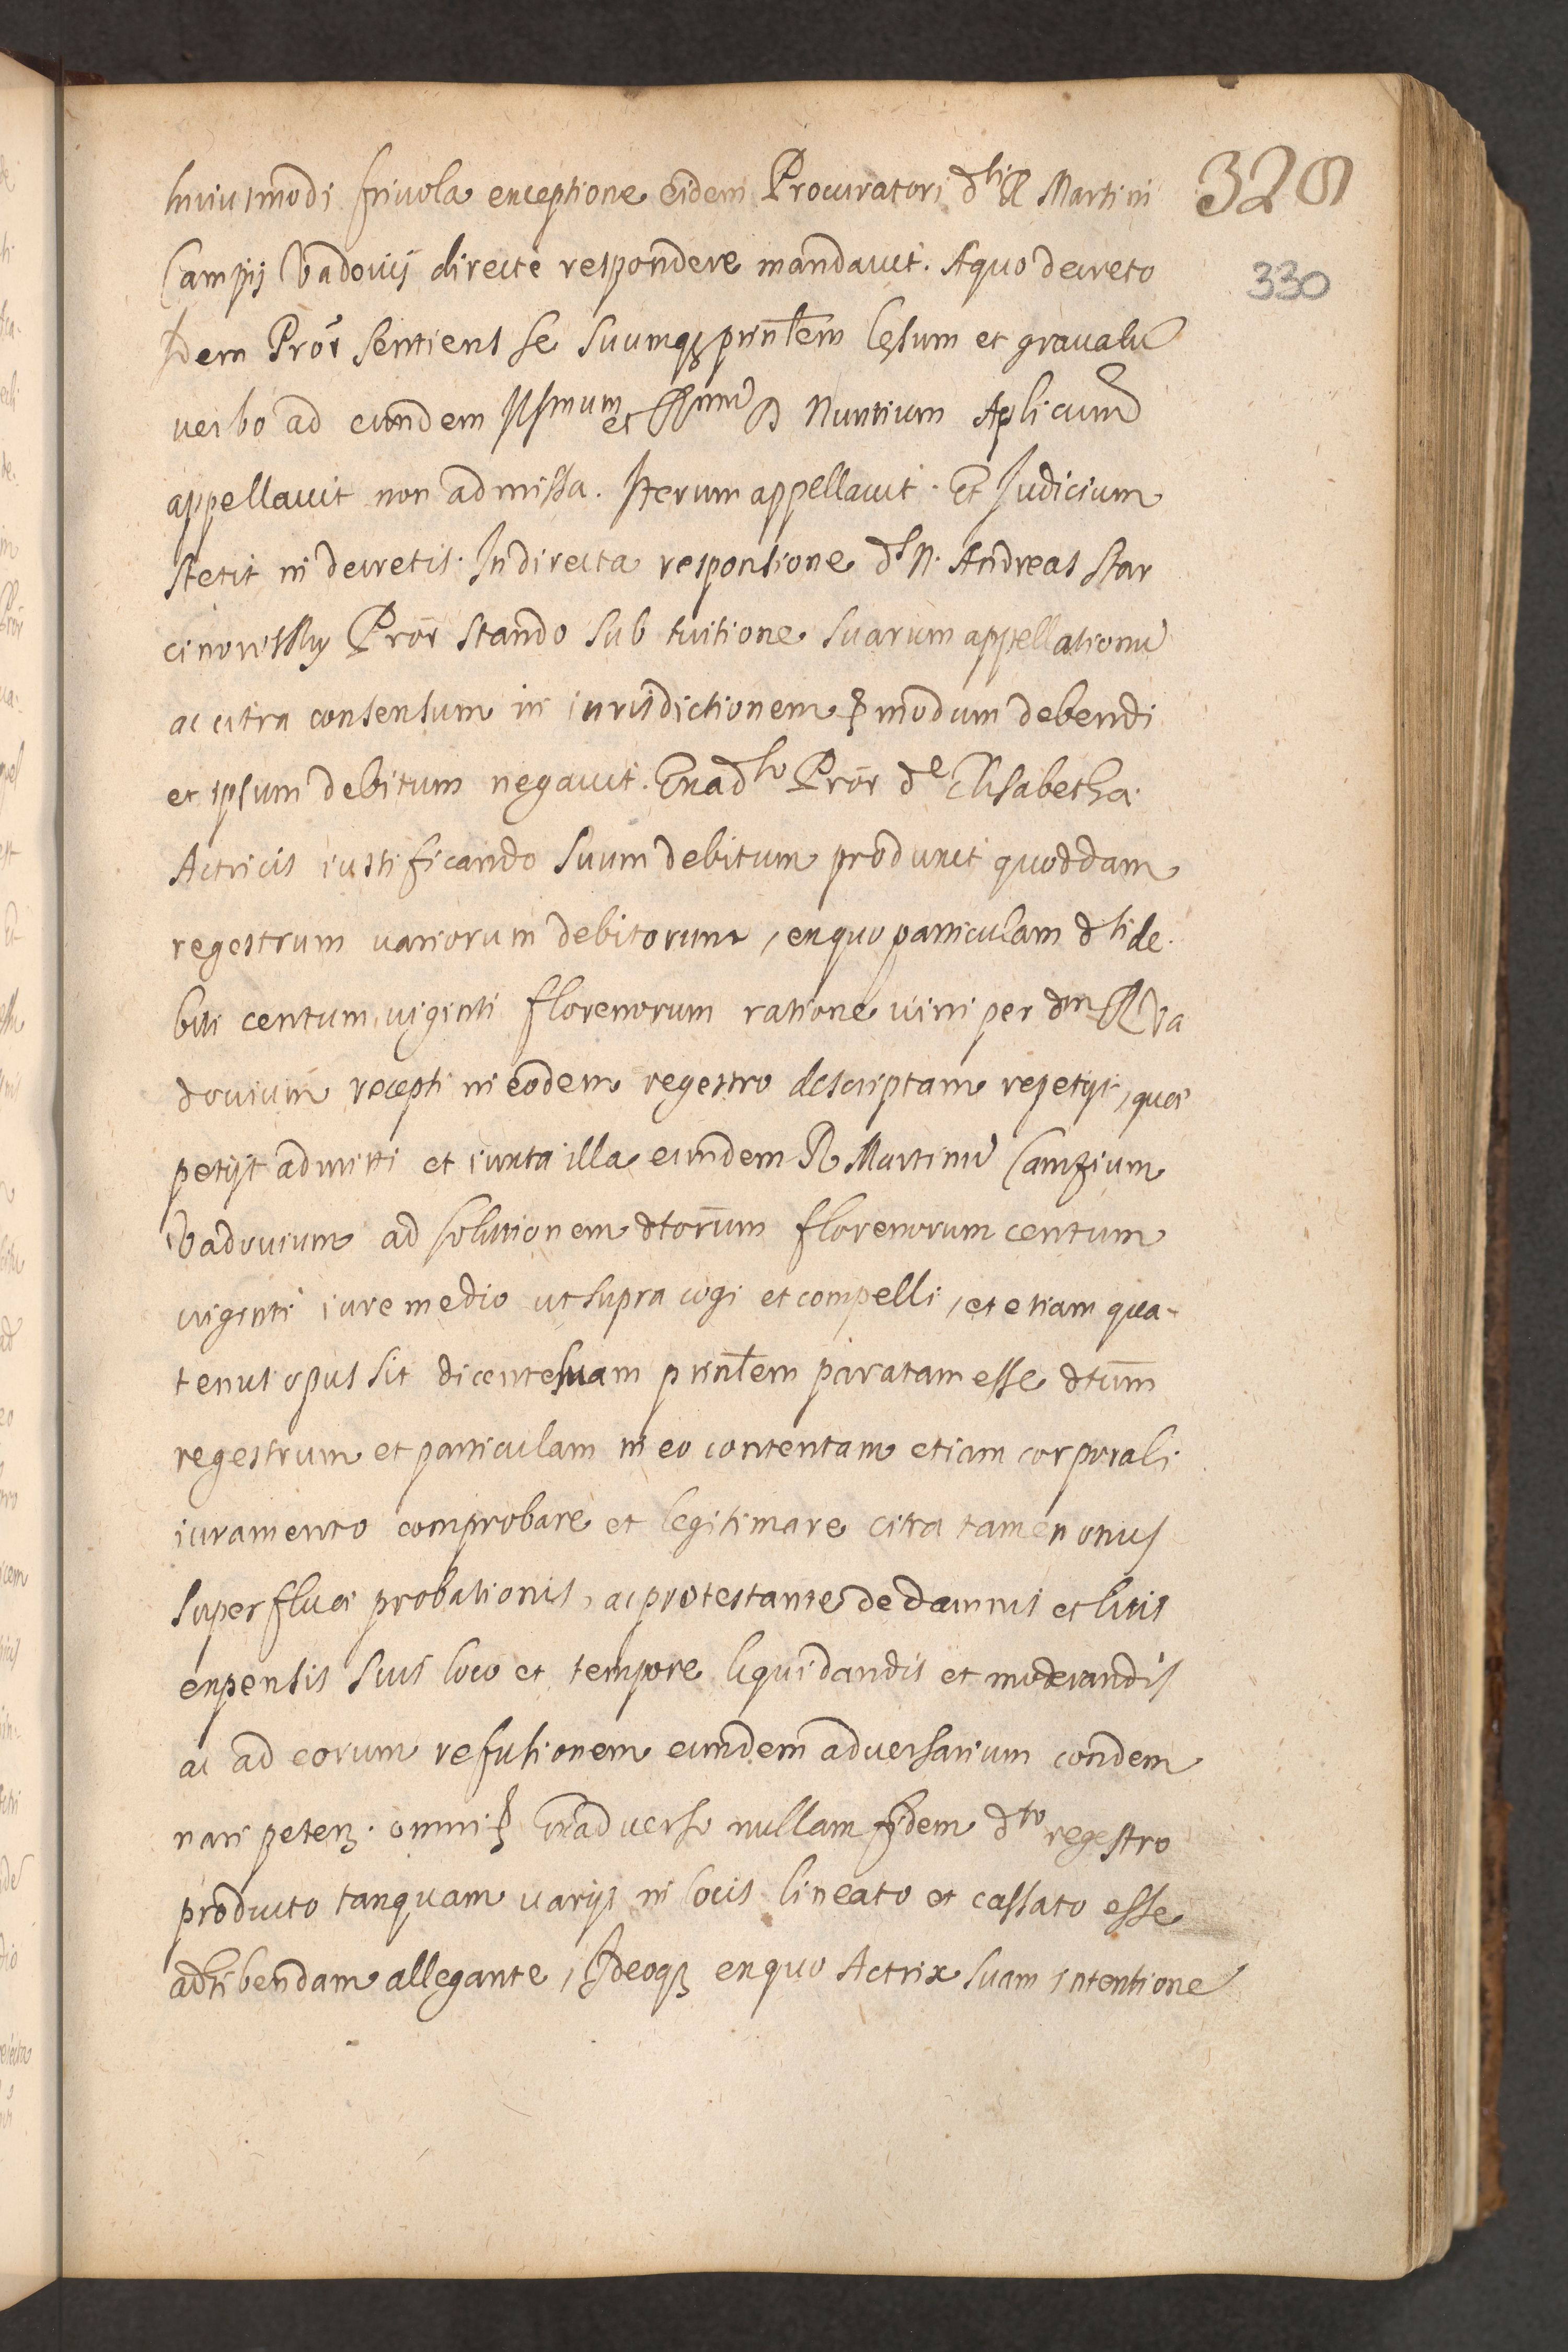 huiusmodi friuola exceptione eidem Procuratori dti R Martini 328
Campij Vadouij directe respondere mandauit. A quo decreto
330
Idem Pror sentiens se suumq printem lęsum et grauatu
uerbo ad eundem Illsmum et Rmu D Nuntium Aplicum
appellauit non admissa. Iterum appellauit. Et Judicium
stetit in decretis. In directa responsione dtus N. Andreas Star
cinowssky Pror stando sub tuitione suarum appellationu
ac citra consensum in iurisdictionem modum debendi
et ipsum debitum negauit. Exadso Pror de Elisabethæ
Actricis iustificando suum debitum produxit quoddam
regestrum uariorum debitorum, ex quo particulam dti de
biti centum uiginti florenorum ratione uini per dm R Va
douium recepti in eodem regestro descriptam repetijt, quæ
petijt admitti et iuxta illa eundem R Martinu Campium
Vadouium ad solutionem dtorum florenorum centum
uiginti iure medio ut supra cogi et compelli, et etiam qua-
tenus opus sit dicente suam printem paratam esse dtum
regestrum et particulam in eo contentam etiam corporali
iuramento comprobare et legitimare citra tamen onus
superfluæ probationis, ac protestante de damnis et litis
expensis suis loco et tempore liquidandis et moderandis
ac ad eorum refusionem eundem aduersarium condem
nari peten. omni Exaduerso nullam fidem dto regestro
producto tanquam uarijs in locis lineato et cassato esse
adhibendam allegante, Ideoq ex quo Actrix suam intentione